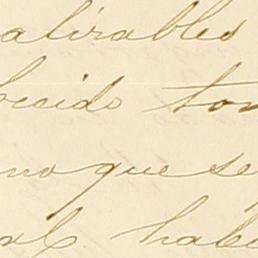 alirables
cecido ton
no que se
al habe